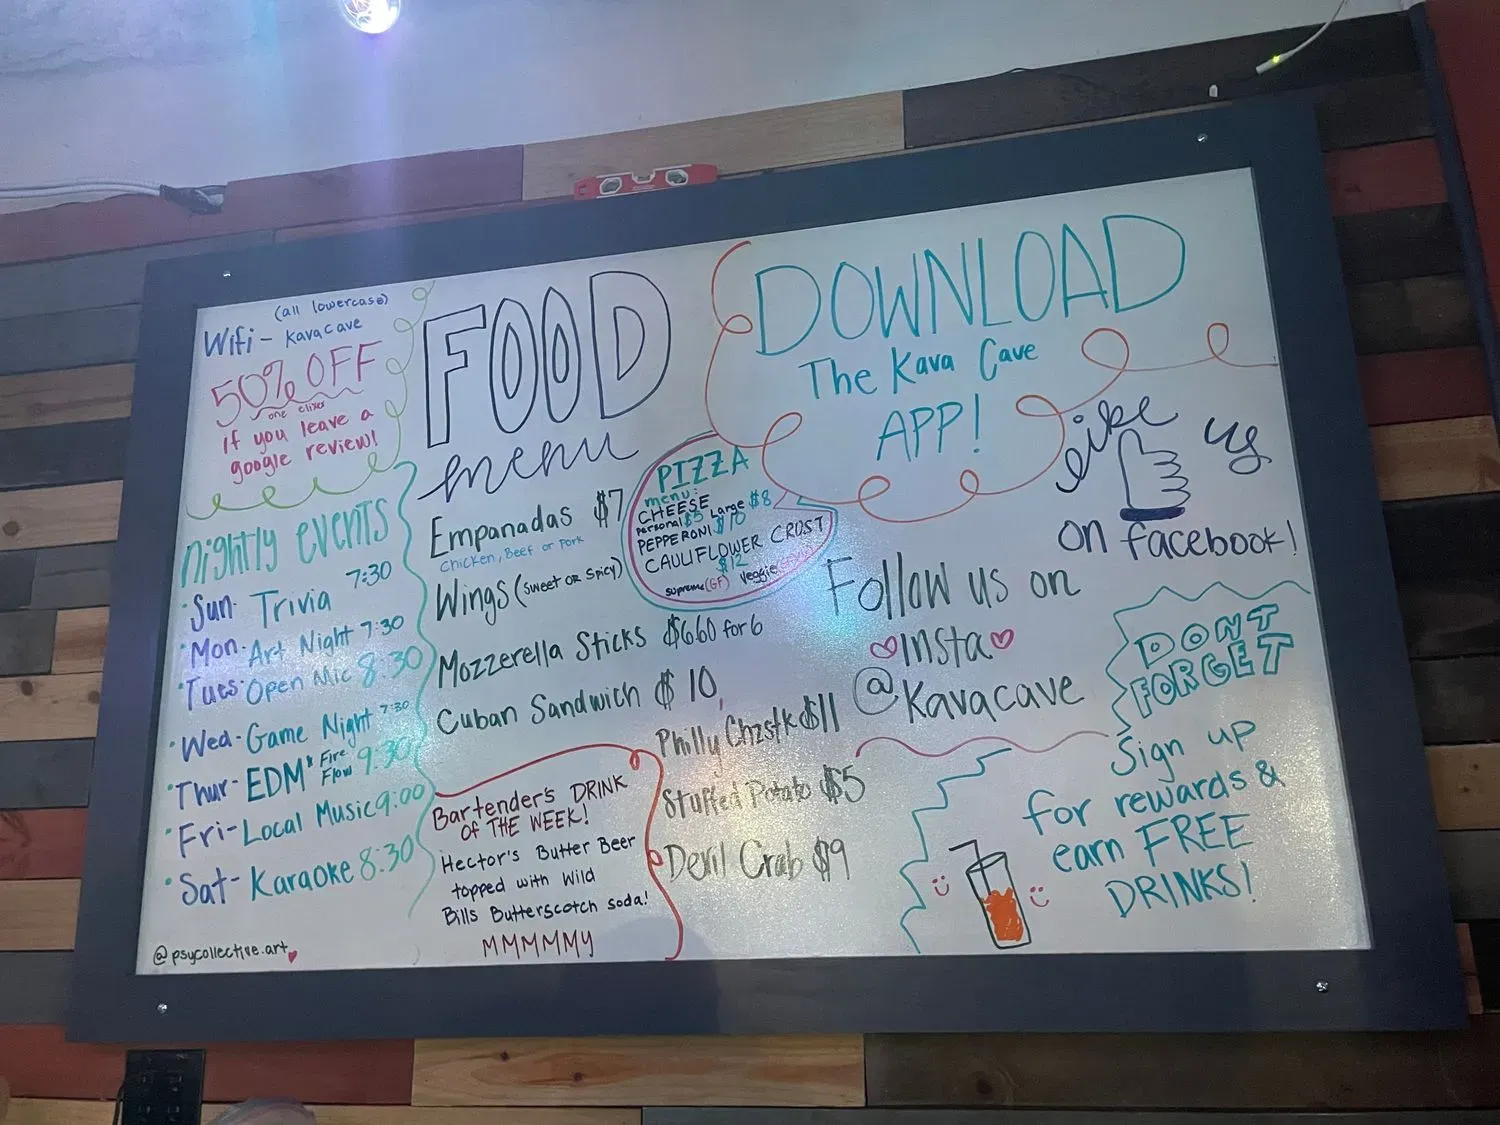 (all lowercase)
Wifi - Kavacave
50% OFF
one elixer
If you leave a
google review!
nightly events
Sun- Trivia 7:30
Mon- Art Night 7:30
Tues- Open Mic 8:30
Wed- Game Night 7:30
Thur- EDM & Fire Flow 9:30
Fri- Local Music 9:00
Sat- Karaoke 8:30
@psycollective.art
FOOD
menu
Empanadas $7
Chicken, Beef or Pork
Wings (Sweet OR Spicy)
Mozzerella Sticks $6.60 for 6
Cuban Sandwich $10
Philly Chzstk $11
Stuffed Potato $5
Devil Crab $9
PIZZA
menu:
CHEESE
Personal $5 Large $8
PEPPERONI $10
CAULIFLOWER CRUST
$12
supreme (GF) Veggie
Bartender's DRINK
of THE WEEK!
Hector's Butter Beer
topped with Wild
Bills Butterscotch soda!
MMMMMY
DOWNLOAD
The Kava Cave
APP!
like us
on facebook!
Follow us on
Insta
@Kavacave
DONT
FORGET
Sign up
for rewards &
earn FREE
DRINKS!